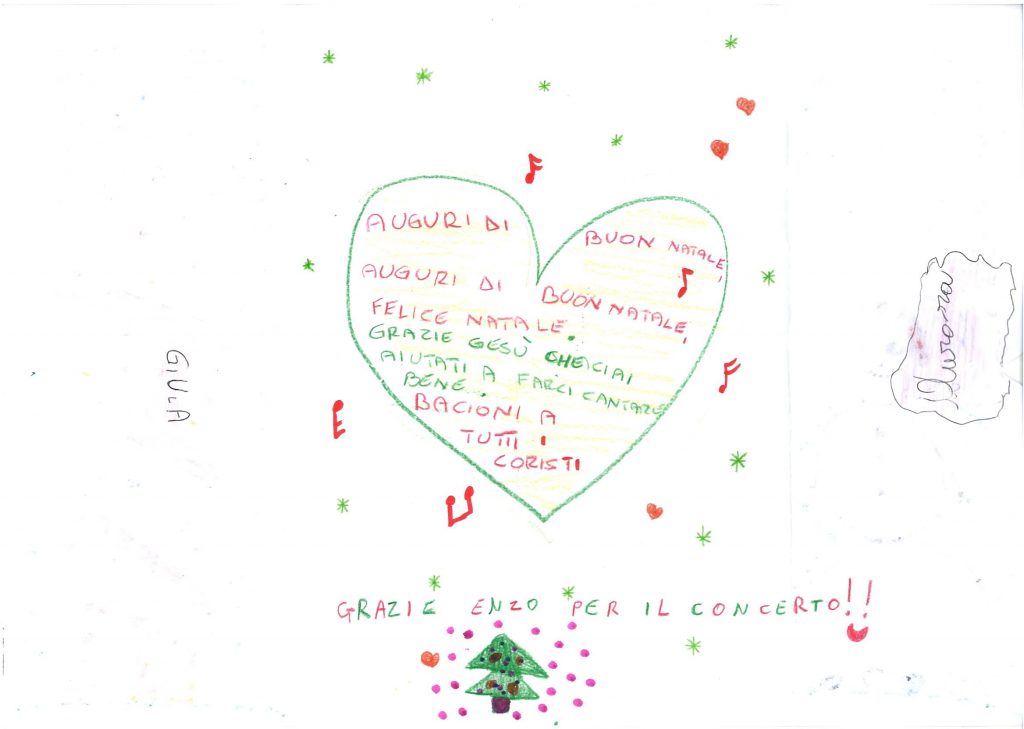 AUGURI DI BUON NATALE,
AUGURI DI BUON NATALE,
FELICE NATALE.
GRAZIE GESÙ CHE CI AI
AIUTATI A FARCI CANTARE
BENE...
BACIONI A
TUTTI I
CORISTI
GRAZIE ENZO PER IL CONCERTO!!
GIULIA